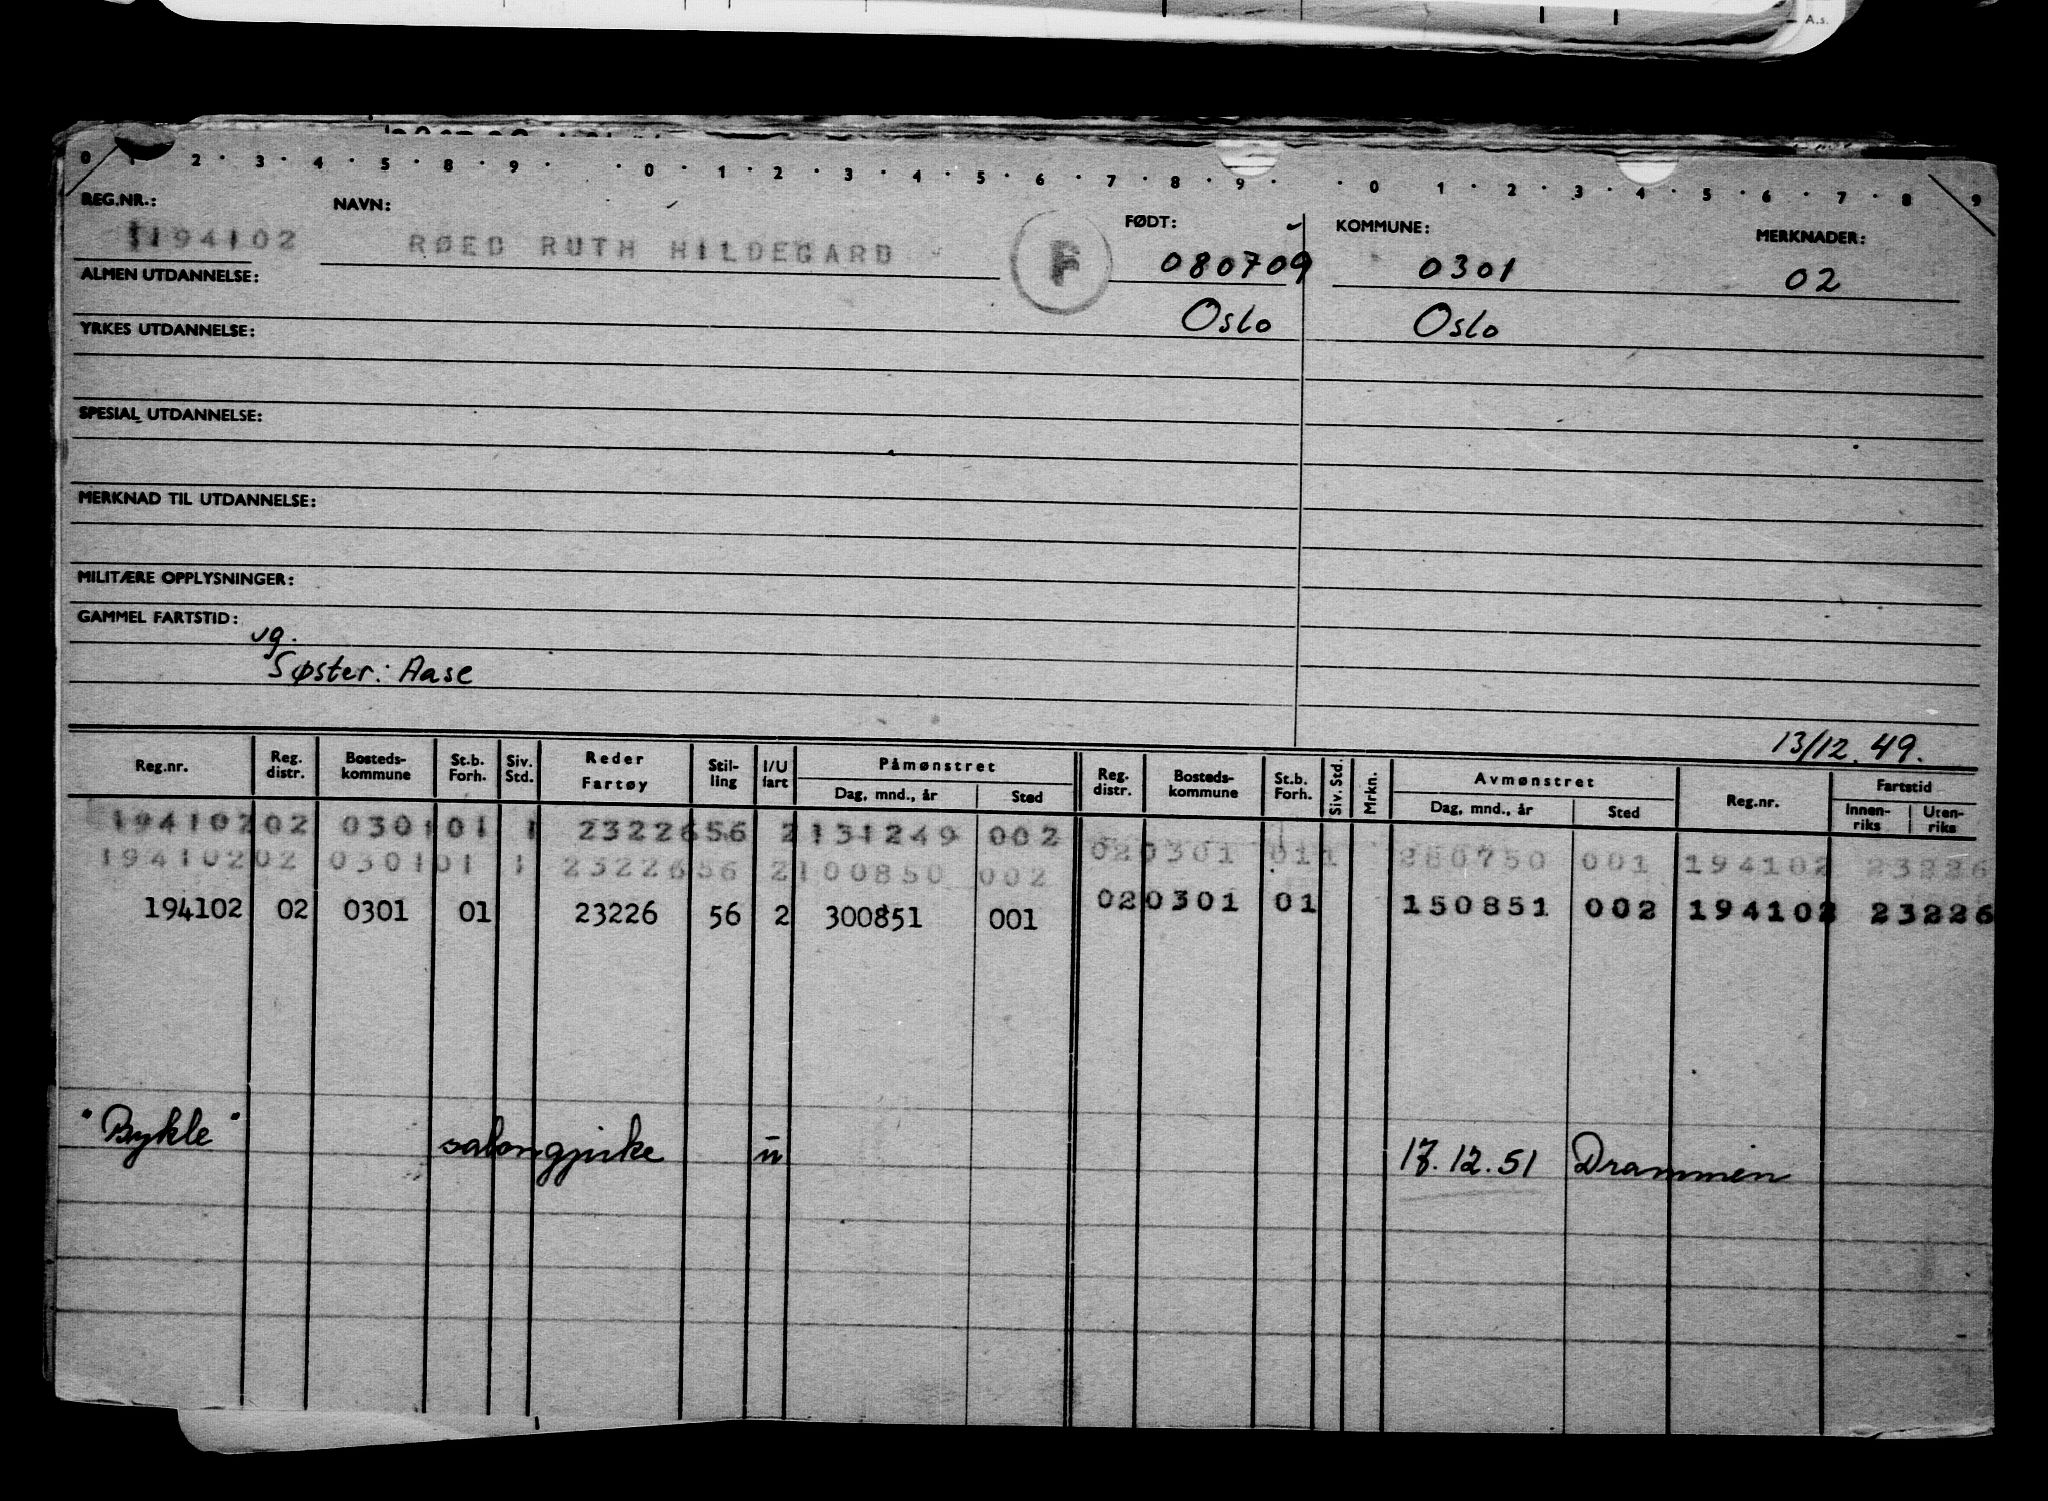 A.s.
0 1 2 · 3 · 4 · 5 · 8 · 9 · · 0 · 1 · 2 · 3 · 4 · 5 · 6 · 7 · 8 · 9 · · 0 · 1 · 2 · 3 · 4 · 5 · 6 · 7 · 8 · 9
REG.NR.: NAVN: FØDT: KOMMUNE: MERKNADER:
194102 RØED RUTH HILDEGARD F 080709 0301 02
ALMEN UTDANNELSE: Oslo Oslo
YRKES UTDANNELSE:
SPESIAL UTDANNELSE:
MERKNAD TIL UTDANNELSE:
MILITÆRE OPPLYSNINGER:
GAMMEL FARTSTID:
ug.
Søster: Aase
13/12.49.
Reg.nr. Reg. distr. Bosteds-kommune St.b. Forh. Siv. Std. Reder Fartøy Stil-ling I/U fart Påmønstret Dag, mnd., år Sted Reg. distr. Bosteds-kommune St.b. Forh. Siv. Std. Mrkn. Avmønstret Dag, mnd., år Sted Reg.nr. Fartstid Innen-riks Uten-riks
194102 02 0301 01 1 23226 56 2 131249 002 02 0301 01 1 280750 001 194102 23226
194102 02 0301 01 1 23226 56 2 100850 002 02 0301 01 150851 002 194102 23226
194102 02 0301 01 23226 56 2 300851 001
"Bykle" salongpike u 17.12.51 Drammen